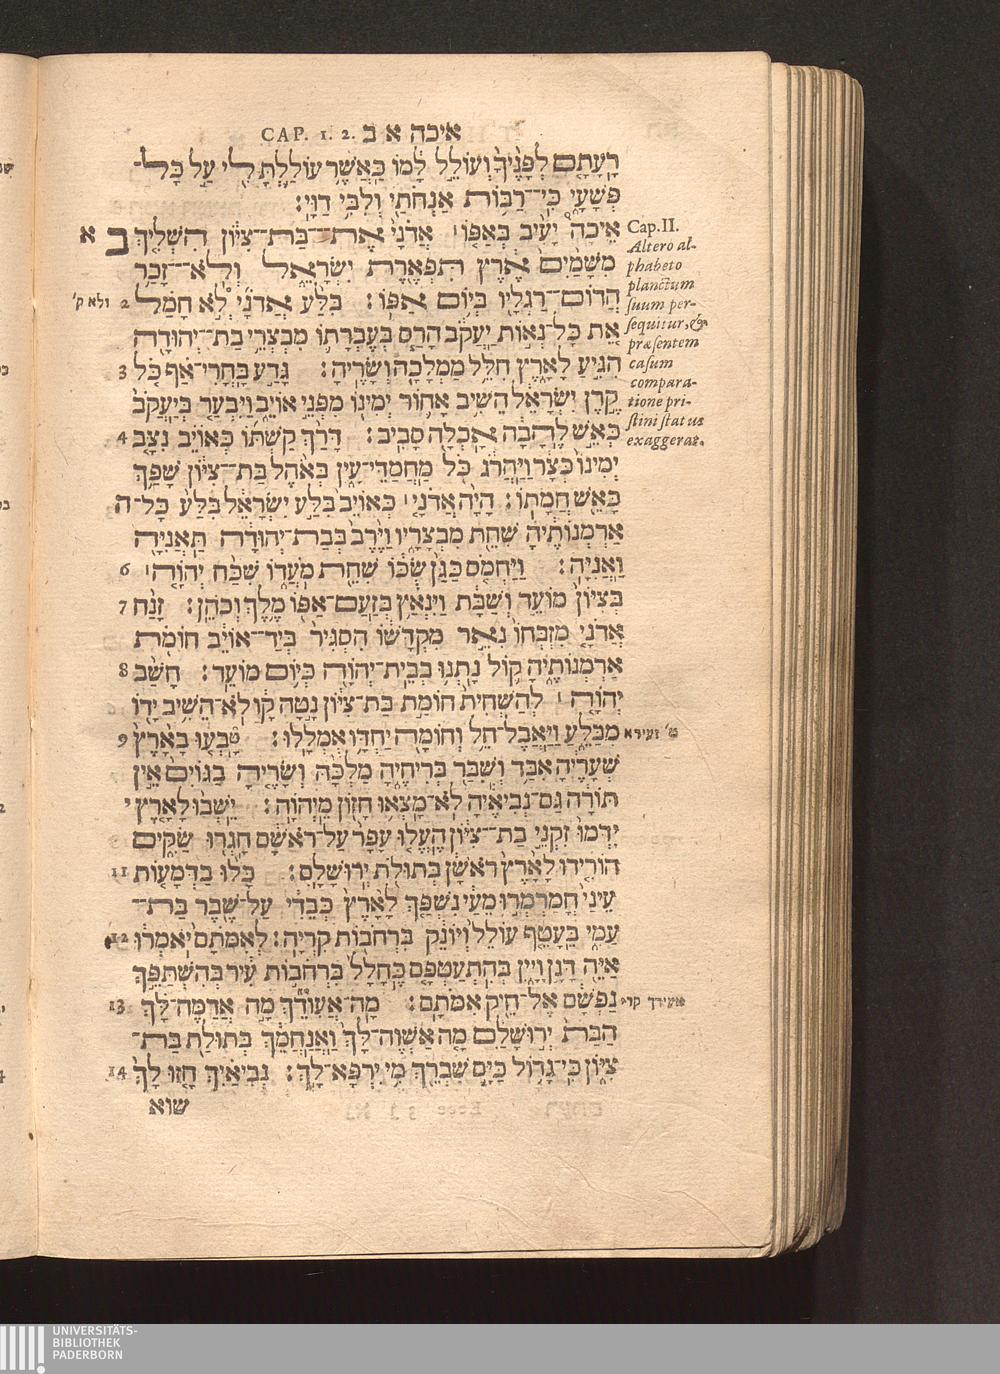 CAP. 1. 2. איכה א ב
רָעָתָם לְפָנֶיךָ וְעוֹלֵל לָמוֹ כַּאֲשֶׁר עוֹלַלְתָּ לִי עַל כָּל־
פְּשָׁעָי כִּי־רַבּוֹת אַנְחֹתַי וְלִבִּי דַוָּי׃
Cap. II.
Altero al-
phabeto
planctum
suum per-
sequitur, &
præsentem
casum
compara-
tione pri-
stini status
exaggerat.
ב א אֵיכָה יָעִיב בְּאַפּוֹ׀ אֲדֹנָי אֶת־בַּת־צִיּוֹן הִשְׁלִיךְ
מִשָּׁמַיִם אֶרֶץ תִּפְאֶרֶת יִשְׂרָאֵל וְלֹא־זָכַר
הֲדוֹם־רַגְלָיו בְּיוֹם אַפּוֹ׃ בִּלַּע אֲדֹנָי לֹא חָמַל 2 ולא ק׳
אֵת כָּל־נְאוֹת יַעֲקֹב הָרַס בְּעֶבְרָתוֹ מִבְצְרֵי בַת־יְהוּדָה
הִגִּיעַ לָאָרֶץ חִלֵּל מַמְלָכָה וְשָׂרֶיהָ׃ גָּדַע בָּחֳרִי־אַף כֹּל 3
קֶרֶן יִשְׂרָאֵל הֵשִׁיב אָחוֹר יְמִינוֹ מִפְּנֵי אוֹיֵב וַיִּבְעַר בְּיַעֲקֹב
כְּאֵשׁ לֶהָבָה אָכְלָה סָבִיב׃ דָּרַךְ קַשְׁתּוֹ כְּאוֹיֵב נִצָּב 4
יְמִינוֹ כְּצָר וַיַּהֲרֹג כֹּל מַחֲמַדֵּי־עָיִן בְּאֹהֶל בַּת־צִיּוֹן שָׁפַךְ
כָּאֵשׁ חֲמָתוֹ׃ הָיָה אֲדֹנָי׀ כְּאוֹיֵב בִּלַּע יִשְׂרָאֵל בִּלַּע כָּל־ ה
אַרְמְנוֹתֶיהָ שִׁחֵת מִבְצָרָיו וַיֶּרֶב בְּבַת־יְהוּדָה תַּאֲנִיָּה
וַאֲנִיָּה׃ וַיַּחְמֹס כַּגַּן שֻׂכּוֹ שִׁחֵת מֹעֲדוֹ שִׁכַּח יְהוָֹה׀ 6
בְּצִיּוֹן מוֹעֵד וְשַׁבָּת וַיִּנְאַץ בְּזַעַם־אַפּוֹ מֶלֶךְ וְכֹהֵן׃ זָנַח 7
אֲדֹנָי מִזְבְּחוֹ נִאֵר מִקְדָּשׁוֹ הִסְגִּיר בְּיַד־אוֹיֵב חוֹמֹת
אַרְמְנוֹתֶיהָ קוֹל נָתְנוּ בְּבֵית־יְהוָֹה כְּיוֹם מוֹעֵד׃ חָשַׁב 8
יְהוָֹה׀ לְהַשְׁחִית חוֹמַת בַּת־צִיּוֹן נָטָה קָו לֹא־הֵשִׁיב יָדוֹ
ט׳ זעירא מִבַּלֵּעַ וַיַּאֲבֶל־חֵל וְחוֹמָה יַחְדָּו אֻמְלָלוּ׃ טָבְעוּ בָאָרֶץ 9
שְׁעָרֶיהָ אִבַּד וְשִׁבַּר בְּרִיחֶיהָ מַלְכָּהּ וְשָׂרֶיהָ בַגּוֹיִם אֵין
תּוֹרָה גַּם־נְבִיאֶיהָ לֹא־מָצְאוּ חָזוֹן מֵיְהוָֹה׃ יֵשְׁבוּ לָאָרֶץ י
יִדְּמוּ זִקְנֵי בַת־צִיּוֹן הֶעֱלוּ עָפָר עַל־רֹאשָׁם חָגְרוּ שַׂקִּים
הוֹרִידוּ לָאָרֶץ רֹאשָׁן בְּתוּלֹת יְרוּשָׁלָםִ׃ כָּלוּ בַדְּמָעוֹת 11
עֵינַי חֳמַרְמְרוּ מֵעַי נִשְׁפַּךְ לָאָרֶץ כְּבֵדִי עַל־שֶׁבֶר בַּת־
עַמִּי בֵּעָטֵף עוֹלֵל וְיוֹנֵק בִּרְחֹבוֹת קִרְיָה׃ לְאִמֹּתָם יֹאמְרוּ 12
אַיֵּה דָּגָן וָיָיִן בְּהִתְעַטְּפָם כֶּחָלָל בִּרְחֹבוֹת עִיר בְּהִשְׁתַּפֵּךְ
אעידך קרי נַפְשָׁם אֶל־חֵיק אִמֹּתָם׃ מָה־אֲעוּדֵךְ מָה אֲדַמֶּה־לָּךְ 13
הַבַּת יְרוּשָׁלִַם מָה אַשְׁוֶה־לָּךְ וַאֲנַחֲמֵךְ בְּתוּלַת בַּת־
צִיּוֹן כִּי־גָדוֹל כַּיָּם שִׁבְרֵךְ מִי יִרְפָּא־לָךְ׃ נְבִיאַיִךְ חָזוּ לָךְ 14
שוא
UNIVERSITÄTS-
BIBLIOTHEK
PADERBORN